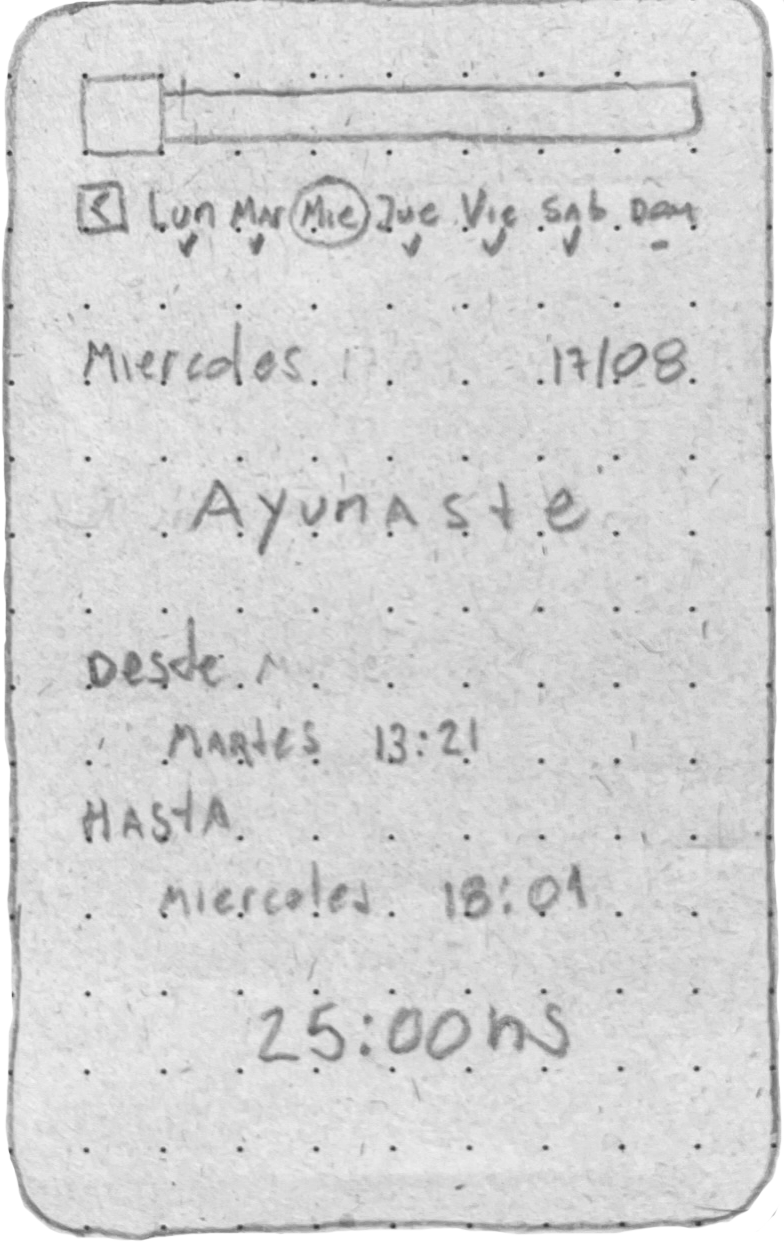 < Lun Mar Mie Jue Vie Sab Dom
Miercoles 17/08
Ayunaste
Desde
Martes 13:21
HASTA
Miercoles 18:01
25:00hs